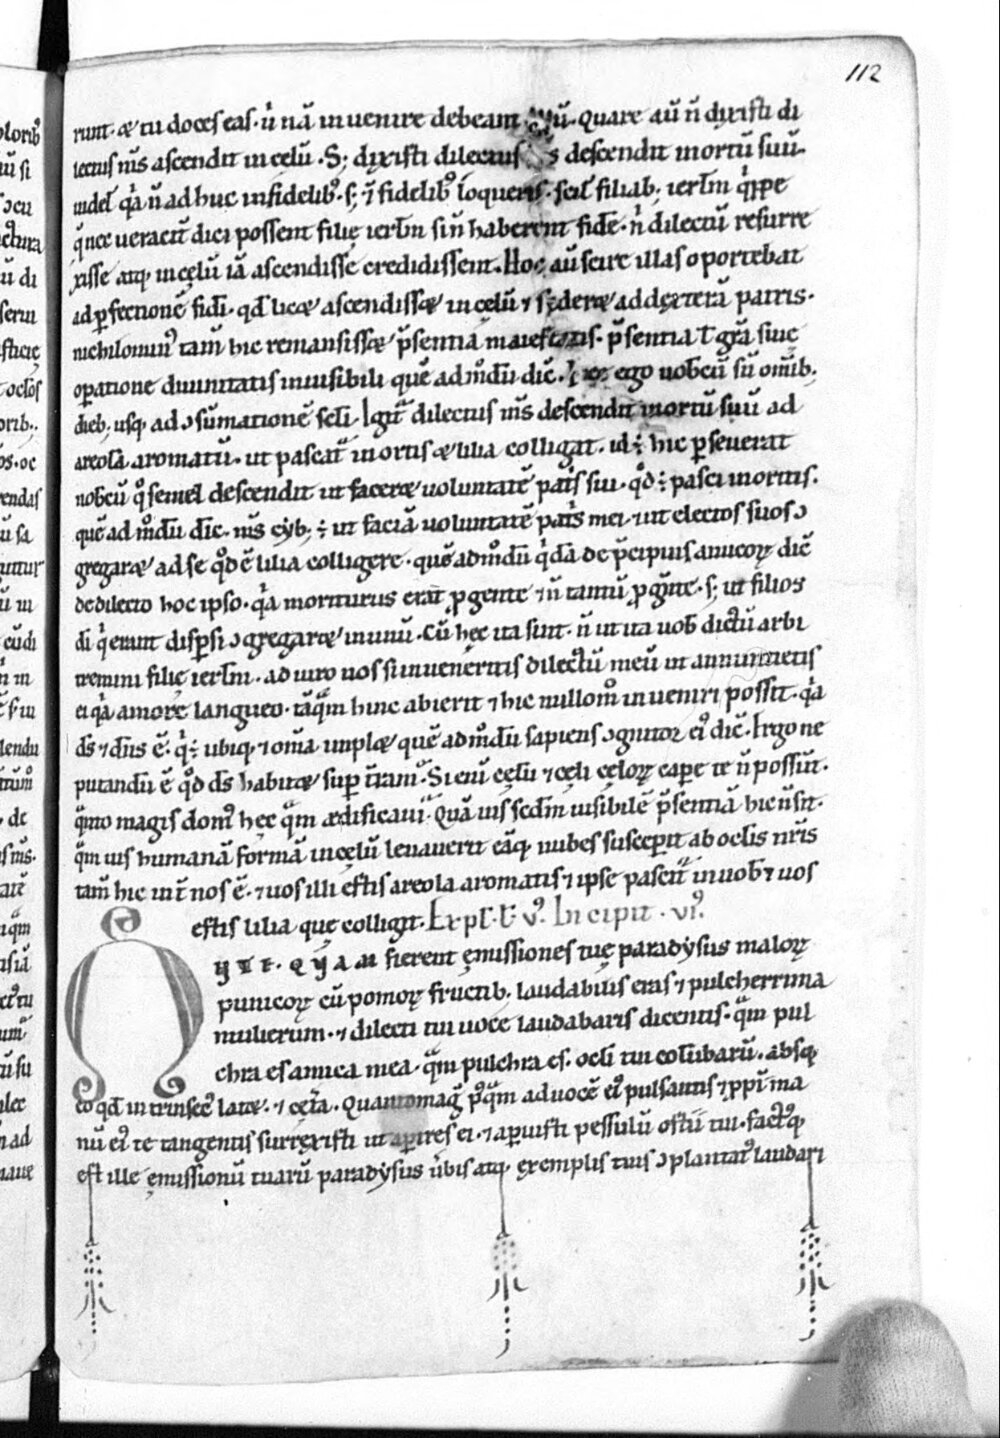 112
runt. & tu doces eas. u̓ nā inuenire debeant. Quare au̅ n̅ dixisti di
lectus m̅s ascendit in celū. S; dixisti dilectus descendit mortū suū.
uidel̅ q̓a n̅ ad huc infidelib᷒. s; ı̅ fidelib᷒ loqueris. scil̅ filiab; ierl̅m q̓ppe
q̓ nec ueracit̅ dici possent filię ierl̅m si n̅ haberent fidē. n̓ dilectū resurre
xisse atq; in cęlū iā ascendisse credidissent. Hoc au̅ scire illas oportebat
ad ꝑfectionē fidi. qd̅ lic& ascendiss& in celū ⁊ seder& ad dexterā patris.
nichilomin᷒ tam̅ hic remansiss& p̅sentiā maiestatis. p̅sentia ł gr̅a siue
oꝑatione diuinitatis inuisibili quē ad m̊dū dic̅. ego uobcū su̅ om̅ib;
dieb; usq; ad ɔsūmationē sc̅li. Igit̅ dilectus m̅s descendit mortū suū ad
areolā aromatū. ut pascat̅ in ortis & lilia colligat. id ÷ hic ꝑseuerat
nobcū q̊ semel descendit ut facer& uoluntatē pat̅s sui. q̊d ÷ pasci in ortis.
quē ad m̊dū dic̅. m̅s cyb; ÷ ut faciā uoluntatē pat̅s mei. ut electos suos ɔ
gregar& ad se q̊d ē lilia colligere. quē ad m̊dū q̓dā de p̅cipuis amicoꝝ dic̅
de dilecto hoc ipso. q̓a moriturus erat ꝓ gente ⁊ n̅ tantū ꝓ g̅nte. s; ut filios
di̅ q̓ erant disꝑsi ɔgregar& in unū. Cū hęc ita sint. n̅ ut ita uob̅ dictū arbi
tremini filię ierl̅m. adiuro uos si inueneritis dilectū meū ut annuntietis
ei q̓a amore langueo. tāq̅m hinc abierit ⁊ hic nullom̊ inueniri possit. q̓a
d̅s ⁊ dn̅s ē. q̓ ÷ ubiq; ⁊ om̅a impl& quē ad m̊dū sapiens ɔgnitor ei᷒ dic̅. Ergo ne
putandū ē q̊d d̅s habit& suꝑ t̅ram̅. Si eni̅ cęlū ⁊ cęli cęloꝝ capere te n̅ possūt.
q̅nto magis dom᷒ hęc q̅m ædificaui̅. Quāuis sc̅dm uisibilē p̅sentiā hic n̅ sit.
q̅m uis humanā formā in cęlū leuauerit eāq; nubes susceꝑit ab oc̅lis nr̅is
tam̅ hic int̅ nos ē. ⁊ uos illi estis areola aromatis ⁊ ipse pascit̅ in uob̅ ⁊ uos
estis lilia que colligit. Expl̅. l̅. v᷒. Incipit. vi᷒.
NTEQUAM fierent emissiones tuę paradysus maloꝝ
punicoꝝ cū pomoꝝ fructib; laudabilis eras ⁊ pulcherrima
mulierum. ⁊ dilecti tui uoce laudabaris dicentis. q̅m pul
chra es amica mea. q̅m pulchra es. oc̅li tui colūbarū. absq;
eo qd̅ intrinsec᷒ lat&. ⁊ cet̅a. Quantomag̅ p᷒q̅m ad uocē ei᷒ pulsantis ⁊ ꝓp̅i ma
nū ei᷒ te tangentis surrexisti ut aꝑires ei. ⁊ aꝑuisti pessulū ostii tui. fact᷒q;
est ille emissionū tuarū paradysus u̅bis atq; exemplis tuis ɔplantat᷒ laudari